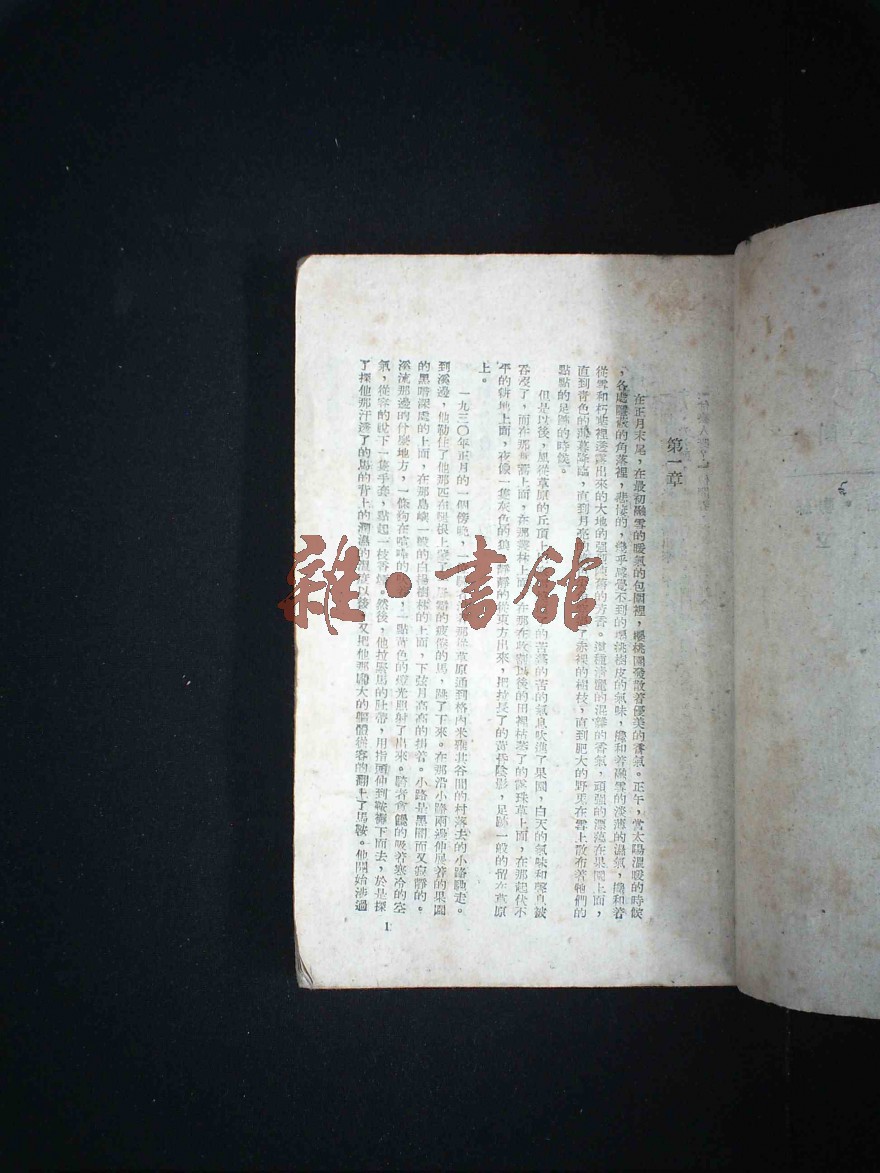 第一章
在正月末尾,在最初融雪的暖氣的包圍裡,櫻桃園發散着優美的香氣。正午,當太陽溫暖的時候
,各處隱蔽的角落裡,悲悽的,幾乎感覺不到的櫻桃樹皮的氣味,攙和着融雪的淡薄的濕氣,攙和着
從雪和朽葉裡透露出來的大地的強烈而 的芳香。這種清麗的混雜的香氣,頑强的漂蕩在果園上面,
直到青色的薄暮降臨,直到月亮 了赤裸的樹枝,直到肥大的野兎在雪上散布着牠們的
點點的足跡的時候。
但是以後,風從草原的丘頂上 的苦蓬的苦的氣息吹進了果園,白天的氣味和聲息被
吞沒了,而在那 上面,在那叢林上 在那在收穫以後的田裡枯萎了的 珠草上面,在那起伏不
平的耕地上面,夜像一隻灰色的 靜靜的從東方出來,把拉長了的黃昏陰影,足跡一般的留在草原
上。
一九三〇年正月的一個傍晚,一 那從草原通到格內米雅其谷間的村落去的小路馳走。
到溪邊,他勒住了他那匹在腿根上 的疲倦的馬,跳了下來。在那沿小路兩邊伸展着的果園
的黑暗深處的上面,在那島嶼一般的白楊樹林的上面,下弦月高高的掛着。小路是黑闇而又寂靜的。
溪流那邊的什麽地方,一條狗在喧嘩的 着,一點黃色的燈光照射了出來。騎者貪饞的吸着寒冷的空
氣,從容的脫下一隻手套,點起一枝香 然後,他拉緊馬的肚帶,用指頭伸到鞍褥下面去,於是探
了探他那汗透了的馬的背上的潤濕的 以後,又把他那龐大的軀體從容的翻上了馬鞍。他開始涉過
1
雜·書館